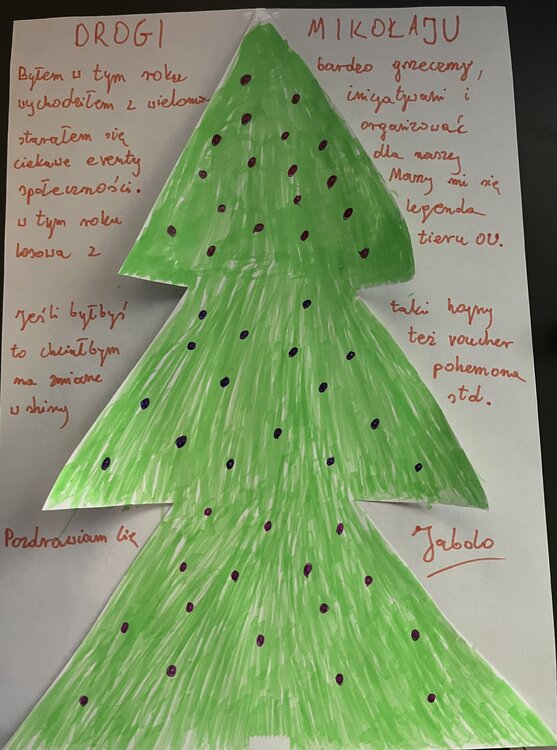 DROGI MIKOŁAJU
Byłem w tym roku bardzo grzeczny,
wychodziłem z wieloma inicjatywami i
starałem się organizować
ciekawe eventy dla naszej
społeczności. Marzy mi się
w tym roku legenda
losowa z tieru OU.
Jeśli byłbyś taki hojny
to chciałbym też voucher
na zmianę pokemona
w shiny std.
Pozdrawiam Cię Jabolo